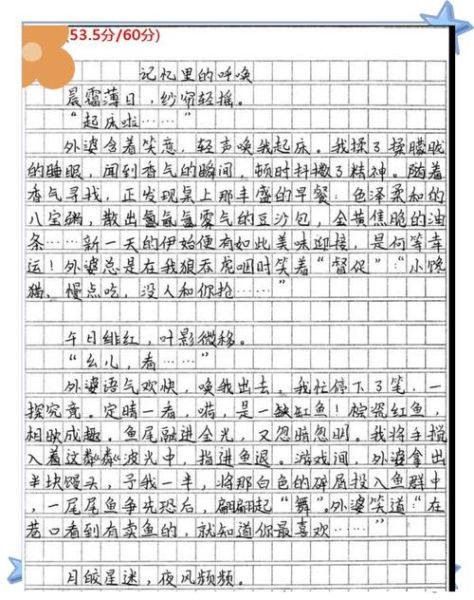 (53.5分/60分)
记忆里的呼唤
晨露薄日，纱帘轻摇。
“起床啦……”
外婆含着笑意，轻声唤我起床。我揉了揉朦胧
的睡眼，闻到香气的瞬间，顿时抖擞了精神。随着
香气寻找，正发现桌上那丰盛的早餐：色泽柔和的
八宝粥，散出氤氲雾气的豆沙包，金黄焦脆的油
条……新一天的伊始便有如此美味迎接，是何等幸
运！外婆总是在我狼吞虎咽时笑着“督促”：“小馋
猫，慢点吃，没人和你抢……”
午日绯红，叶影微移。
“幺儿，看……”
外婆语气欢快，唤我出去。我忙停下了笔，一
探究竟。定睛一看，嗬，是一缸红鱼！棕瓷红鱼，
相映成趣。鱼尾融进金光，又忽暗忽明。我将手搅
入着这粼粼波光中，指进鱼退。游戏间，外婆拿出
半块馒头，予我一半，将那白色的碎屑投入鱼群中
，一尾尾鱼争先恐后，翩翩起“舞”。外婆笑道：“在
巷口看到有卖鱼的，就知道你最喜欢……”
月皎星迷，夜风频频。